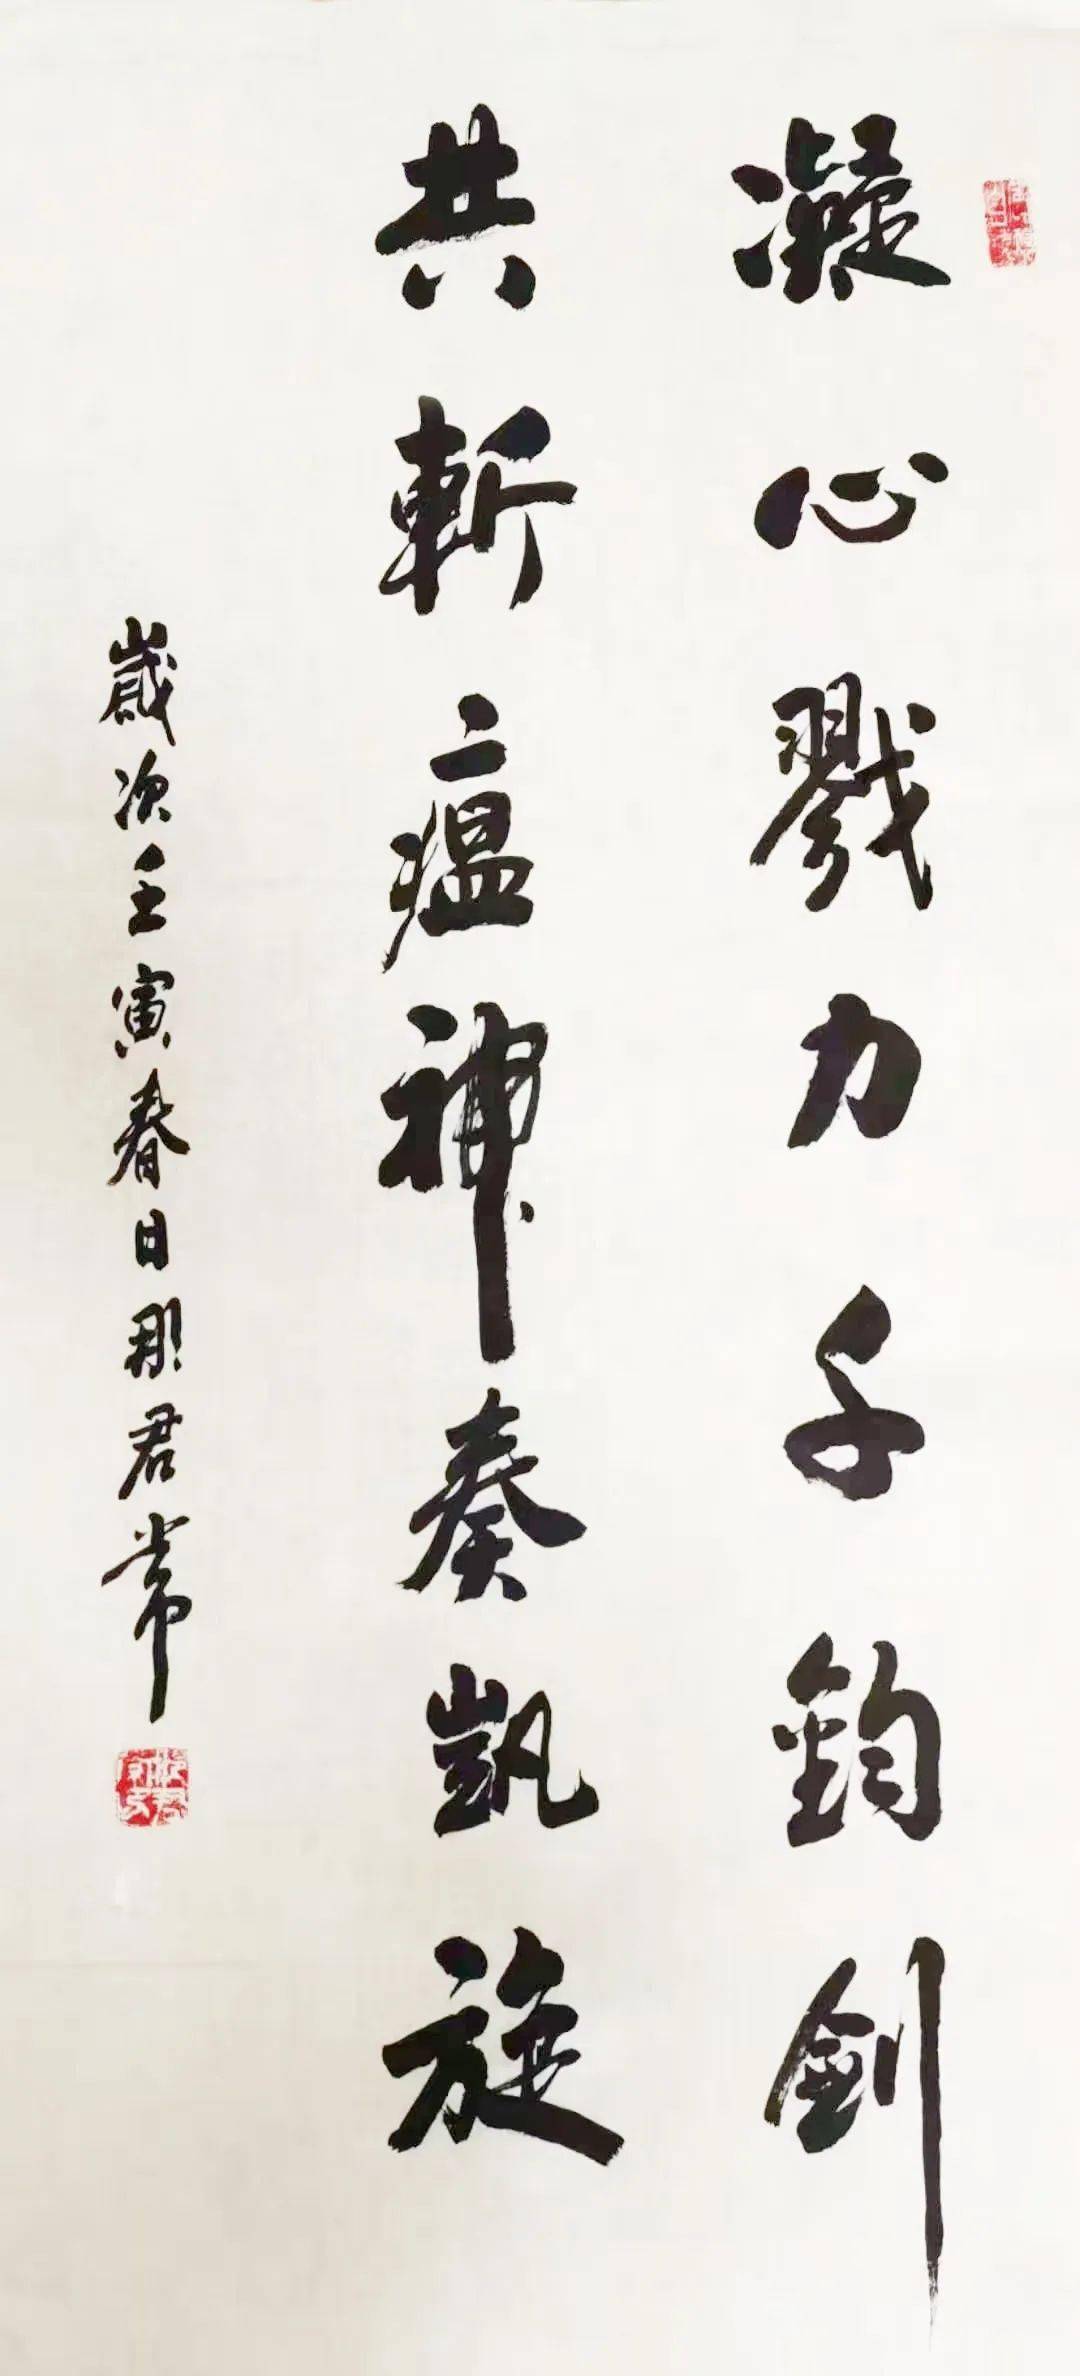 凝心戮力千鈞劍
共斬瘟神奏凱旋
歲次壬寅春日邢君常